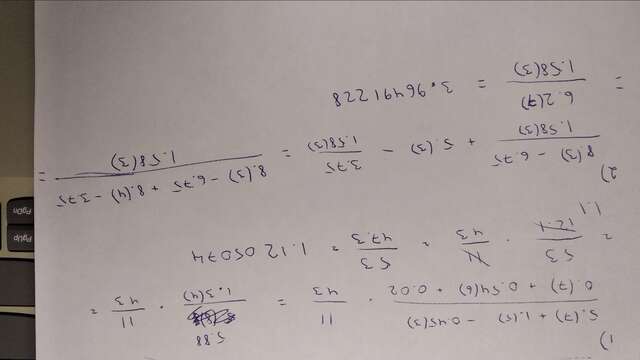 1)
5.(7) + 1.(5) - 0.45(3) / 0.(7) + 0.54(6) + 0.02 · 11/43 = 5.88 / 1.3(4) · 11/43 =
= 53 / 1.1 · 11/43 = 53/47.3 = 1.1205074
2)
8.(3) - 6.75 / 1.58(3) + 5.(3) - 3.75 / 1.58(3) = 8.(3) - 6.75 + 8.(4) - 3.75 / 1.58(3) =
= 6.2(7) / 1.58(3) = 3.96491228
PgUp
PgDn